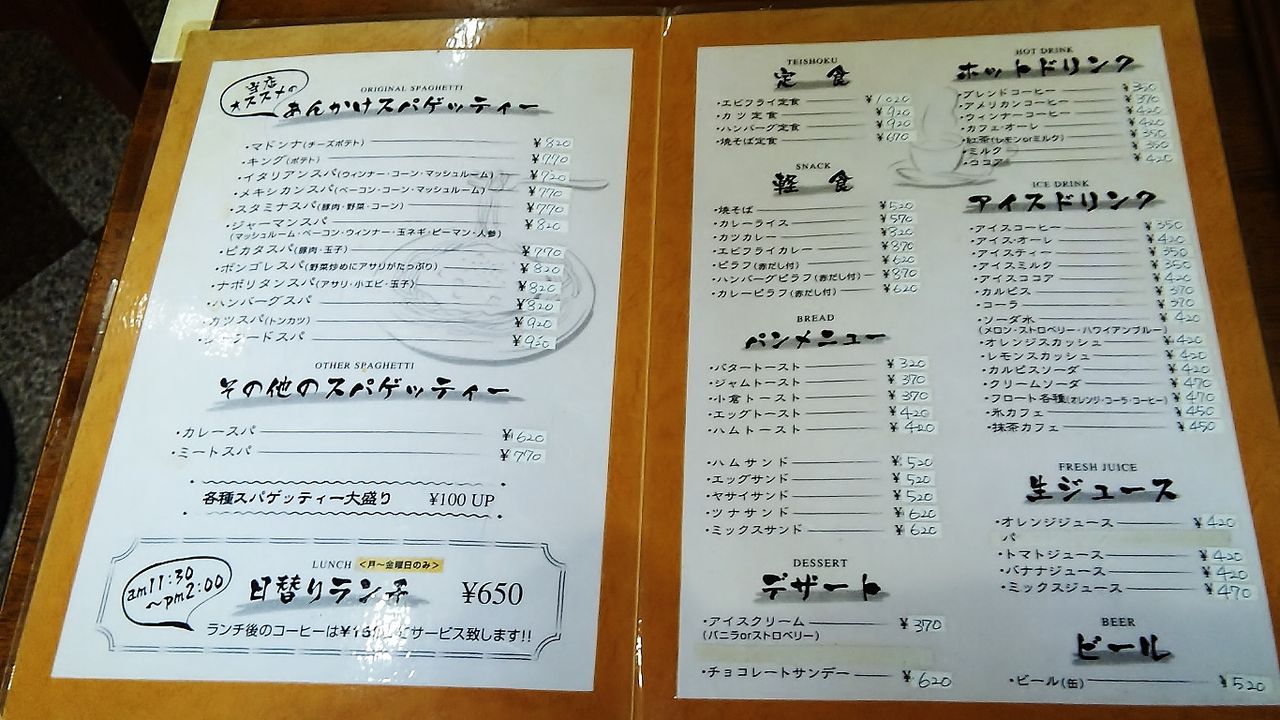 当店
オススメの
ORIGINAL SPAGHETTI
あんかけスパゲッティー
・マドンナ(チーズポテト) ¥820
・キング(ポテト) ¥770
・イタリアンスパ(ウィンナー・コーン・マッシュルーム) ¥720
・メキシカンスパ(ベーコン・コーン・マッシュルーム) ¥770
・スタミナスパ(豚肉・野菜・コーン) ¥770
・ジャーマンスパ ¥820
(マッシュルーム・ベーコン・ウィンナー・玉ネギ・ピーマン・人参)
・ピカタスパ(豚肉・玉子) ¥770
・ボンゴレスパ(野菜炒めにアサリがたっぷり) ¥820
・ナポリタンスパ(アサリ・小エビ・玉子) ¥820
・ハンバーグスパ ¥820
・カツスパ(トンカツ) ¥920
ードスパ ¥930
OTHER SPAGHETTI
その他のスパゲッティー
・カレースパ ¥620
・ミートスパ ¥770
各種スパゲッティー大盛り ¥100 UP
am11:30
～pm2:00
LUNCH <月～金曜日のみ>
日替りランチ ¥650
ランチ後のコーヒーは¥150にてサービス致します!!
TEISHOKU
定食
・エビフライ定食 ¥1020
・カツ定食 ¥920
・ハンバーグ定食 ¥920
・焼そば定食 ¥670
SNACK
軽食
・焼そば ¥520
・カレーライス ¥570
・カツカレー ¥820
・エビフライカレー ¥870
・ピラフ(赤だし付) ¥620
・ハンバーグピラフ(赤だし付) ¥870
・カレーピラフ(赤だし付) ¥620
BREAD
パンメニュー
・バタートースト ¥320
・ジャムトースト ¥370
・小倉トースト ¥370
・エッグトースト ¥420
・ハムトースト ¥420
・ハムサンド ¥520
・エッグサンド ¥520
・ヤサイサンド ¥520
・ツナサンド ¥620
・ミックスサンド ¥620
DESSERT
デザート
・アイスクリーム ¥370
(バニラorストロベリー)
・チョコレートサンデー ¥620
HOT DRINK
ホットドリンク
・ブレンドコーヒー ¥320
・アメリカンコーヒー ¥370
・ウィンナーコーヒー ¥420
・カフェ・オーレ ¥420
・紅茶(レモンorミルク) ¥350
・ミルク ¥350
・ココア ¥420
ICE DRINK
アイスドリンク
・アイスコーヒー ¥350
・アイス・オーレ ¥420
・アイスティー ¥350
・アイスミルク ¥350
・アイスココア ¥420
・カルピス ¥370
・コーラ ¥370
・ソーダ水 ¥420
(メロン・ストロベリー・ハワイアンブルー)
・オレンジスカッシュ ¥420
・レモンスカッシュ ¥420
・カルピスソーダ ¥420
・クリームソーダ ¥470
・フロート各種(オレンジ・コーラ・コーヒー) ¥470
・氷カフェ ¥450
・抹茶カフェ ¥450
FRESH JUICE
生ジュース
・オレンジジュース ¥420
パ
・トマトジュース ¥420
・バナナジュース ¥420
・ミックスジュース ¥470
BEER
ビール
・ビール(缶) ¥520